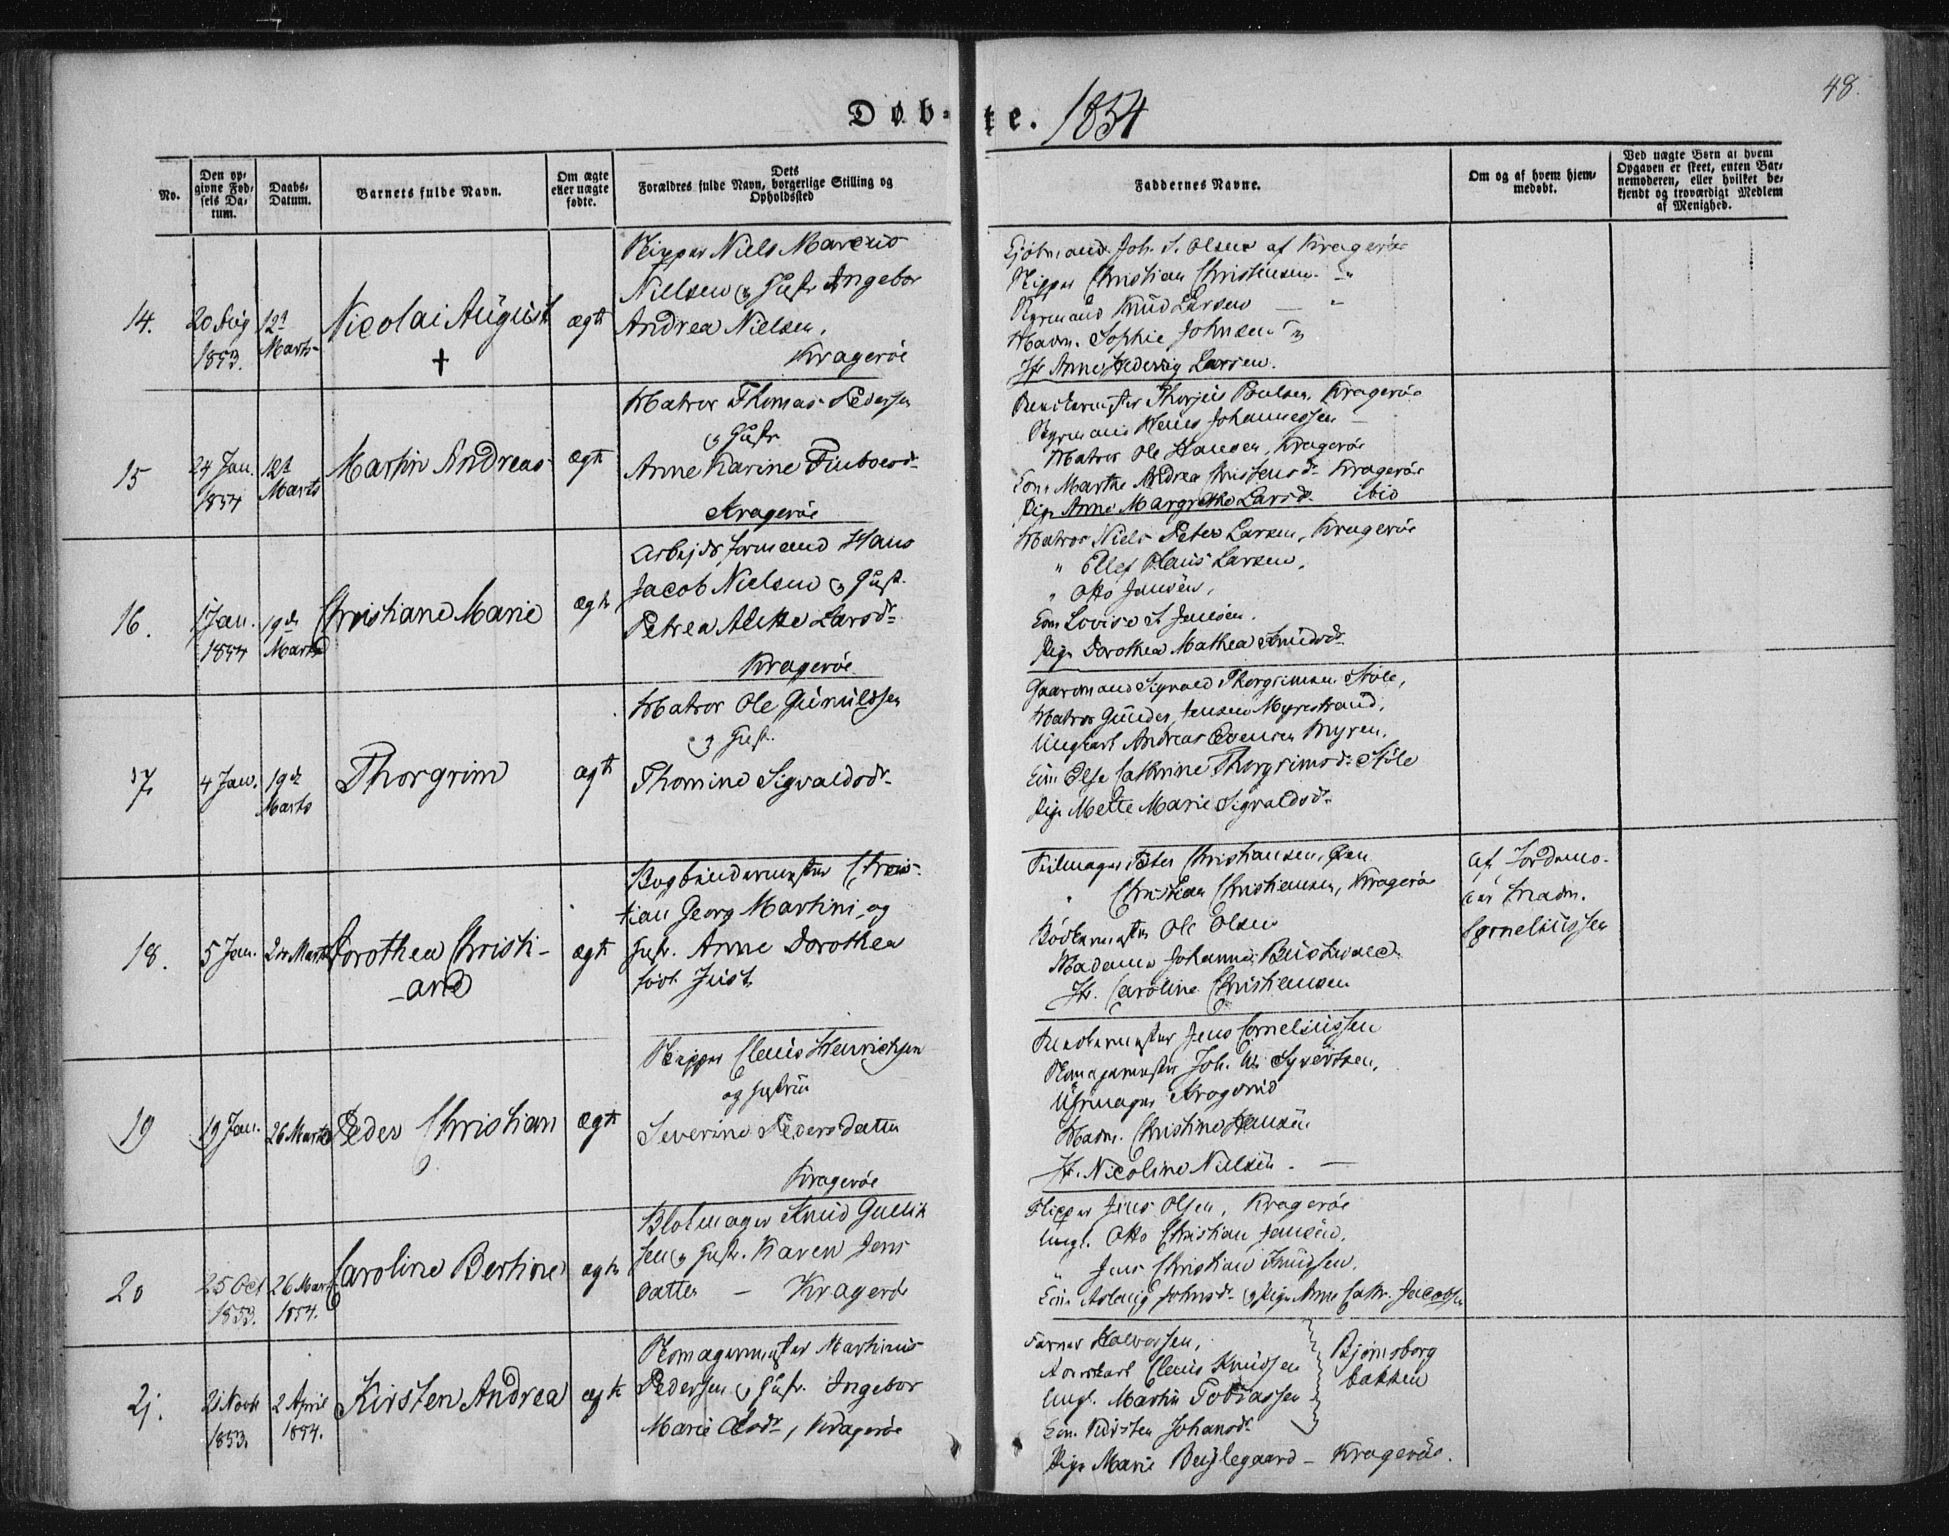 48.
Døbte. 1854
No.
Den opgivne Fødsels Datum.
Daabs-Datum.
Barnets fulde Navn.
Om ægte eller uægte fødte.
Dets Forældres fulde Navn, borgerlige Stilling og Opholdssted
Faddernes Navne.
Om og af hvem hjemmedøbt.
Ved uægte Børn at hvem Opgaven er skeet, enten Barnemoderen, eller hvilket bekjendt og troværdigt Medlem af Menighed.
14.
20 Aug 1853.
12t Marts
Nicolai August
+
ægte
Skipper Niels Marcus
Nielsen og Hustr Ingebor
Andrea Nielsen.
Kragerøe
Joh. S. Olsen af Kragerøe
Skipper Christian Christensen "
Styrmand Knud Larsen "
Madm. Sophie Johnsen
Jfr Anne Hedevig Larsen.
15
24 Jan. 1854
12t Marts
Martin Andreas
ægte
Matros Thomas Pedersen
og Hustr.
Anne Karine
Kragerøe
Poulsen, Kragerøe
Styrmand Johannessen
Matros Ole Hansen, Kragerøe
Kone Marthe Andrea Christensd. Kragerøe
Pige Anne Margrethe Larsd. ibid
16.
1 Jan. 1854
19de Marts
Christiane Marie
ægte
Arbejdsformand Hans
Jacob Nielsen og Hust.
Petrea Alette Larsdr
Kragerøe
Matros Niels Peter Larsen, Kragerøe
" Ellef Larsen,
" Otto Jansen,
Kone Lovise Jansen.
Pige Dorothea Mathea Knudsdr
17.
4 Jan.
19de Marts
Thorgrim
ægte
Matros Ole Gunuldsen
og Hust.
Thomine Sigvaldsdr
Gaardmand Sigvald Thorgrimsen Støle,
Matros Gunder Jensen Myrestrand,
Ungkarl Andreas Evensen Myren,
Kone Else Cathrine Thorgrimsdr Støle
Pige Mette Marie Sigvaldsdr
18.
5 Jan.
24 Marts
Dorothea Christiane
ægte
Bogbindermester Christian
Georg Martini og
Hustr. Anne Dorothea
født Just.
Seilmager Peter Christiansen,
" Christian Christiansen, Kragerøe
Bødkermester Ole Olsen
Madame Johanne
Jfr. Caroline Christiansen
af Jordemoder
Madm.
Corneliussen
19
19 Jan.
26 Marts
Peder Christian
ægte
Skipper Claus Henrichsen
og Hustru
Severine Pedersdatter
Kragerøe
Jens Corneliussen
Skomagermester Joh. Syvertsen,
Uhrmager
Madm. Christine Hansen
Jfr. Nicoline Nielsen. —
20
25 Oct 1853.
26 Marts 1854.
Caroline Bertine
ægte
Blokmager Knud Gullik
sen og Hustr. Karen Jens
datter — Kragerøe
Skipper Jens Olsen, Kragerøe
Ungk. Otto Christian Jansen,
" Jens Christian Knudsen,
Kone Aslaug Johnsdr og Pige Anne Cath. Jacobsen
21.
21 Novb 1853.
2 April 1854.
Kirsten Andrea
ægte
Skomagermester Martinus
Pedersen og Hustr. Ingebor
Marie Olsdr, Kragerøe
Farver Halvorsen,
Claus Knudsen
Ungk. Martin Tobiassen
Kone Kirsten Johansdr
Bjørnsborg
bakken
Pige Marie Beylegaard — Kragerøe.